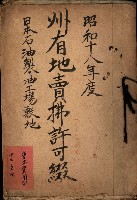 昭和十八年度
州有地賣拂許可綴
日本石油製油工場敷地